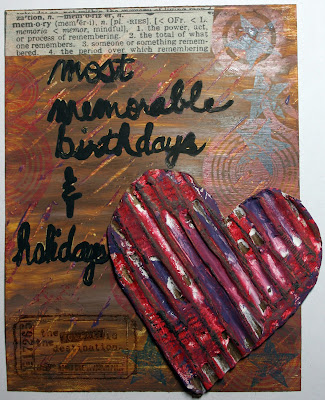 za′tion, n. mem′o·riz′er, n.
mem·o·ry (mem′ẽr-i), n. [pl. -RIES], [< OFr. < L.
memoria < memor, mindful], 1. the power, act,
or process of remembering. 2. the total of what
one remembers. 3. someone or something remem-
bered. 4. the period over which remembering
most
memorable
birthdays
&
holidays
the
the
destination.